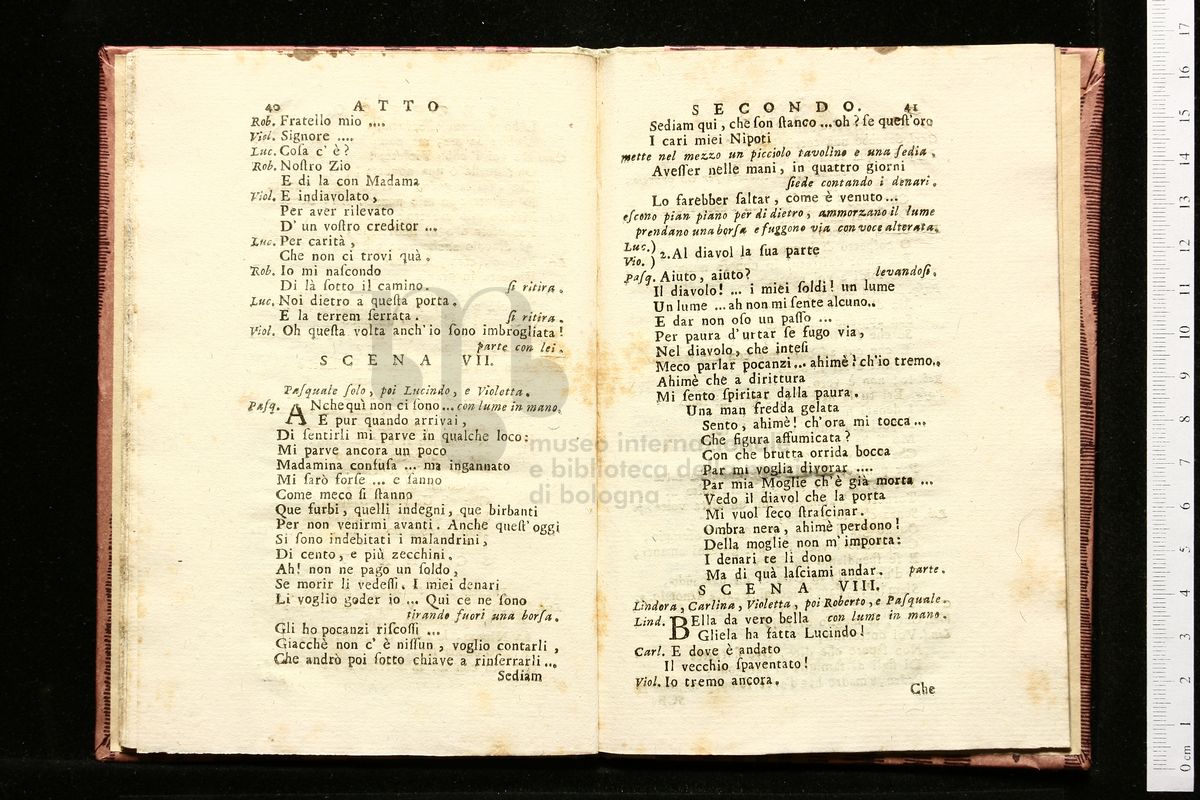 40 ATTO
Rob. Fratello mio ....
Viol. Signore ....
Luc. Cosa c' è ?
Rob. Nostro Zio
E di la con Madama
Viol. E indiavolato ,
Per aver rilevato
D' un vostro creditor ...
Luc. Per carità ,
Che non ci trovi quà .
Rob. Io mi nascondo
Di là sotto il camino . si ritira .
Luc. Noi dietro a questa porta .
E la terrem serrata . si ritira .
Viol. Oh questa volta anch' io sono imbrogliata !
parte con lei .
SCENA VII.
Pasquale solo , poi Lucindo , e Violetta .
Pasq. ANche quì non ci sono ... con lume in mano .
E pur quando arrivai ,
Di sentirli mi parve in qualche loco :
Mi parve ancora un poco
Madamina confusa ... ma ingannato
Mi sarò forse ... e sanno
Come meco si stanno
Que furbi , quelli indegni , que birbanti
Per non venirmi avanti . Anche quest' oggi
Si sono indebitati i malandrini ,
Di cento , e più zecchini .
Ah ! non ne pago un soldo ,
Se morir li vedessi . I miei denari
Li voglio goder io ... Qui ce ne sono
tirando fuori una borsa .
Gli ho pocanzi riscossi ...
Giacchè non c' è nissun , voglio contarli ,
Che andrò poi sotto chiave a rinserrarli ...
Sediam
SECONDO. 41
Sediam qui , che son stanco ... oh ? se quest' oro
I cari miei Nipoti
mette nel mezzo un picciolo tavolino e una sedia .
Avesser nelle mani , in quattro giorni
siede contando i denari .
Lo farebber saltar , come è venuto ...
escono pian piano per di dietro , ammorzano il lume
prendano una borsa e fuggono via con voce alterata .
Luc. )
Vio. ) 2. Al diavol la sua parte
Pasq. Aiuto , aiuto ? levandosi .
Il diavolo ! ... i miei soldi ! un lume
Un lume ... ah non mi sente alcuno ..
E dar non oso un passo ...
Per paura d' urtar se fugo via ,
Nel diavolo , che intesi
Meco parlar pocanzi ... ahimè ? ch'io tremo ..
Ahimè che a dirittura
Mi sento spiritar dalla paura .
Una man fredda gelata
Sento , ahimè ! ch' ora mi tocca ...
Che figura affumicata ?
Con che brutta orrida bocca
Par mi voglia divorar ....
Par mia Moglie ch' è già morta ...
Vedo il diavol che la porta
Mi vuol seco strascinar .
Ombra nera , ahimè perdono !
Della moglie non m' importa :
I denari te li dono
Ma di quà lasciami andar . parte .
SCENA VIII.
Lindora , Carlina , Violetta , poi Roberto , e Pasquale .
Lind. BElla da vero bella con lume in mano .
Gliela ha fatta Lucindo !
Carl. E dove è andato
Il vecchio spaventato !
Viol. Io tremo ancora .
Che
museo internazionale
e biblioteca de
di bologna
0 cm 1 2 3 4 5 6 7 8 9 10 11 12 13 14 15 16 17